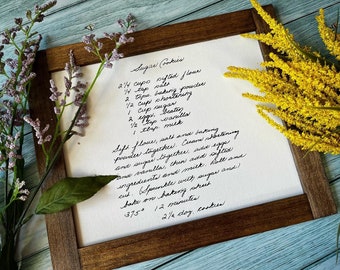 Sugar Cookies
2¼ cups sifted flour
¼ tsp salt
2 tsps baking powder
1/2 cup shortening
1 cup sugar
2 eggs, beaten
½ tsp vanilla
1 tbsp milk
Sift flour, salt and baking
powder together. Cream shortening
and sugar together, add eggs
and vanilla, then add sifted
ingredients and milk. Roll and
cut. Sprinkle with sugar and
bake on baking sheet
375° 12 minutes
2¼ doz. cookies